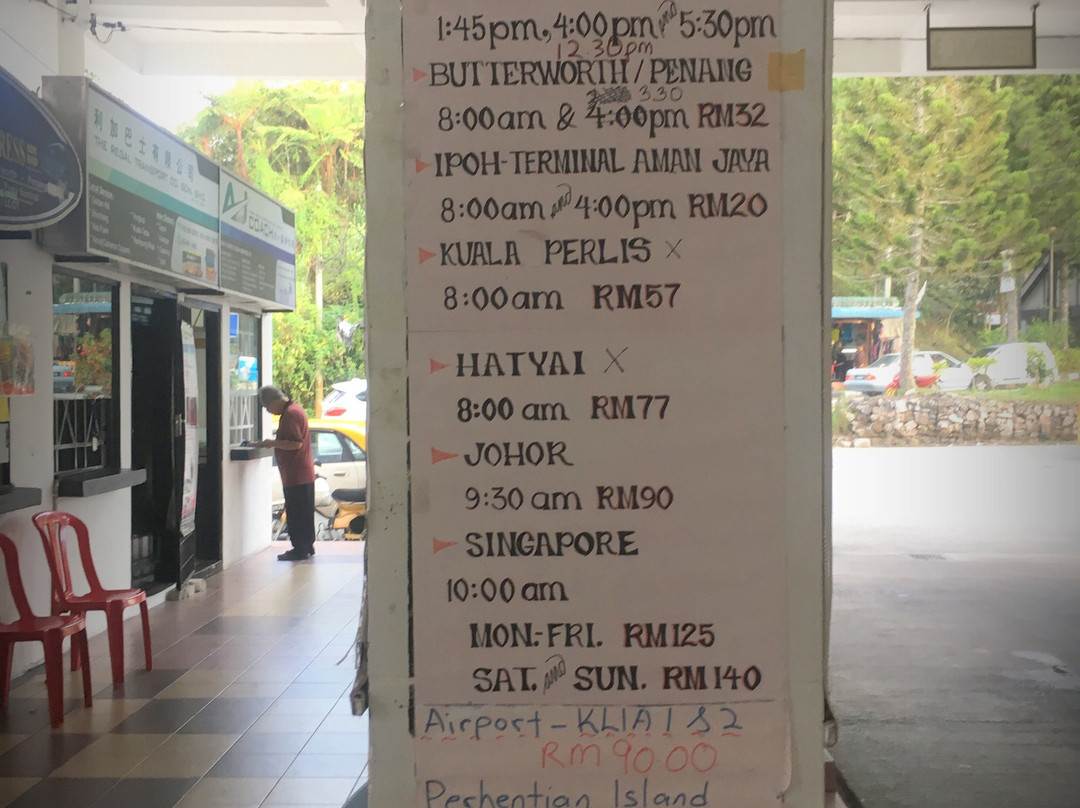 1:45pm, 4:00pm and 5:30pm
12.30pm
BUTTERWORTH / PENANG
3 30
8:00am & 4:00pm RM32
IPOH-TERMINAL AMAN JAYA
8:00am and 4:00pm RM20
KUALA PERLIS X
8:00am RM57
HATYAI X
8:00 am RM77
JOHOR
9:30 am RM90
SINGAPORE
10:00 am
MON.-FRI. RM125
SAT. and SUN. RM140
Airport - KLIA 1 & 2
RM90 00
Perhentian Island
RESS
利加巴士有限公司
THE REGAL TRANSPORT CO. SDN. BHD.
COACH